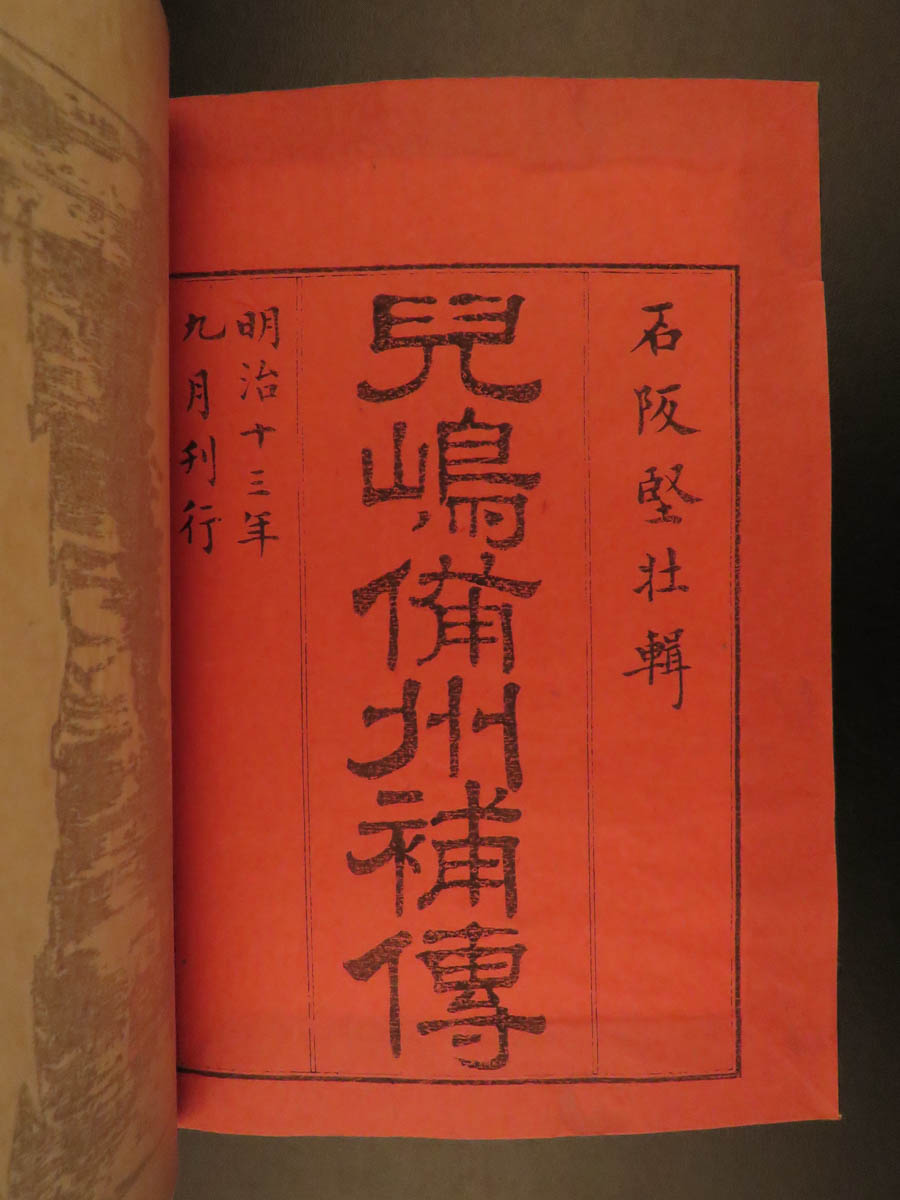 石阪堅壮輯
兒嶋備州補傳
明治十三年
九月刊行